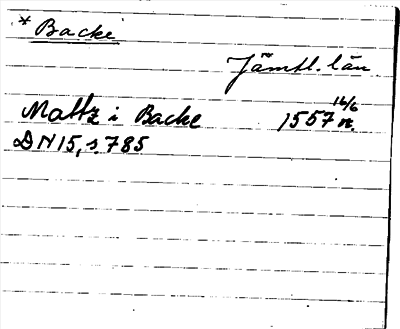 * Backe
Jämtl. län
Maltz i Backe 1557 16/6
DN 15, s. 785